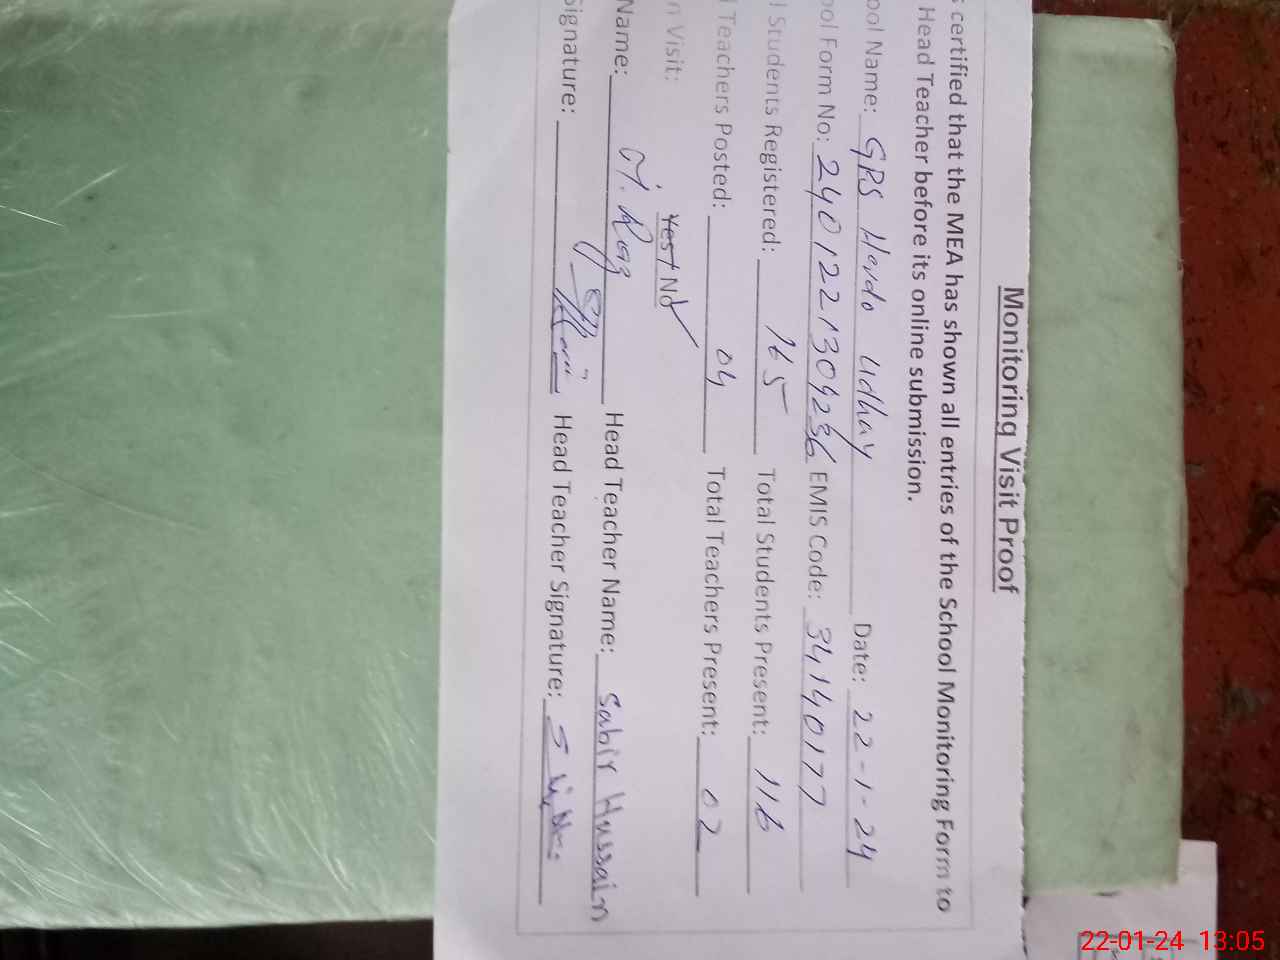 Monitoring Visit Proof
certified that the MEA has shown all entries of the School Monitoring Form to
Head Teacher before its online submission.
ool Name: GPS Herdo Udhay Date: 22-1-24
ool Form No: 2401221309236 EMIS Code: 34140177
l Students Registered: 165 Total Students Present: 116
l Teachers Posted: 04 Total Teachers Present: 02
n Visit: Yes+ No
Name: Head Teacher Name: Sabir Hussain
Signature: Head Teacher Signature:
22-01-24 13:05